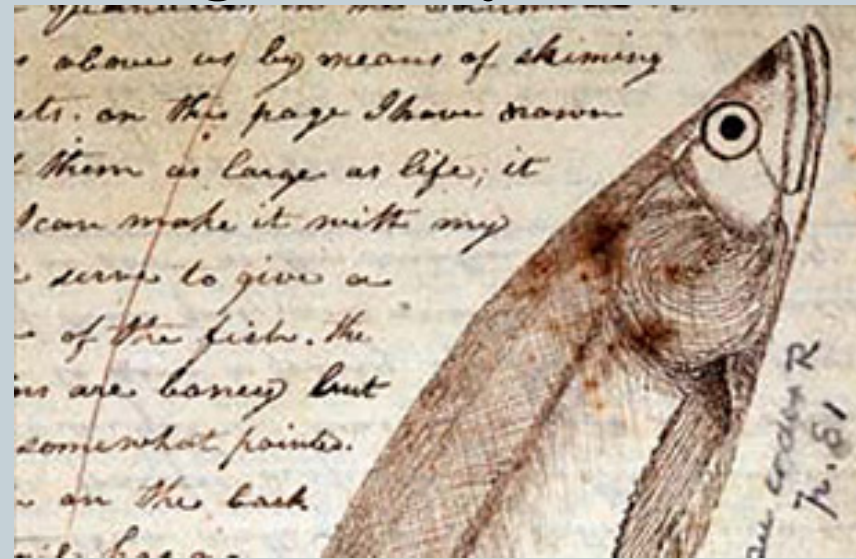 above us by means of skiming
ets. on this page I have drawn
them as large as life; it
I can make it with my
serve to give a
of the fish. the
ns are boney but
somewhat pointed.
on the back
codex R
p. 81